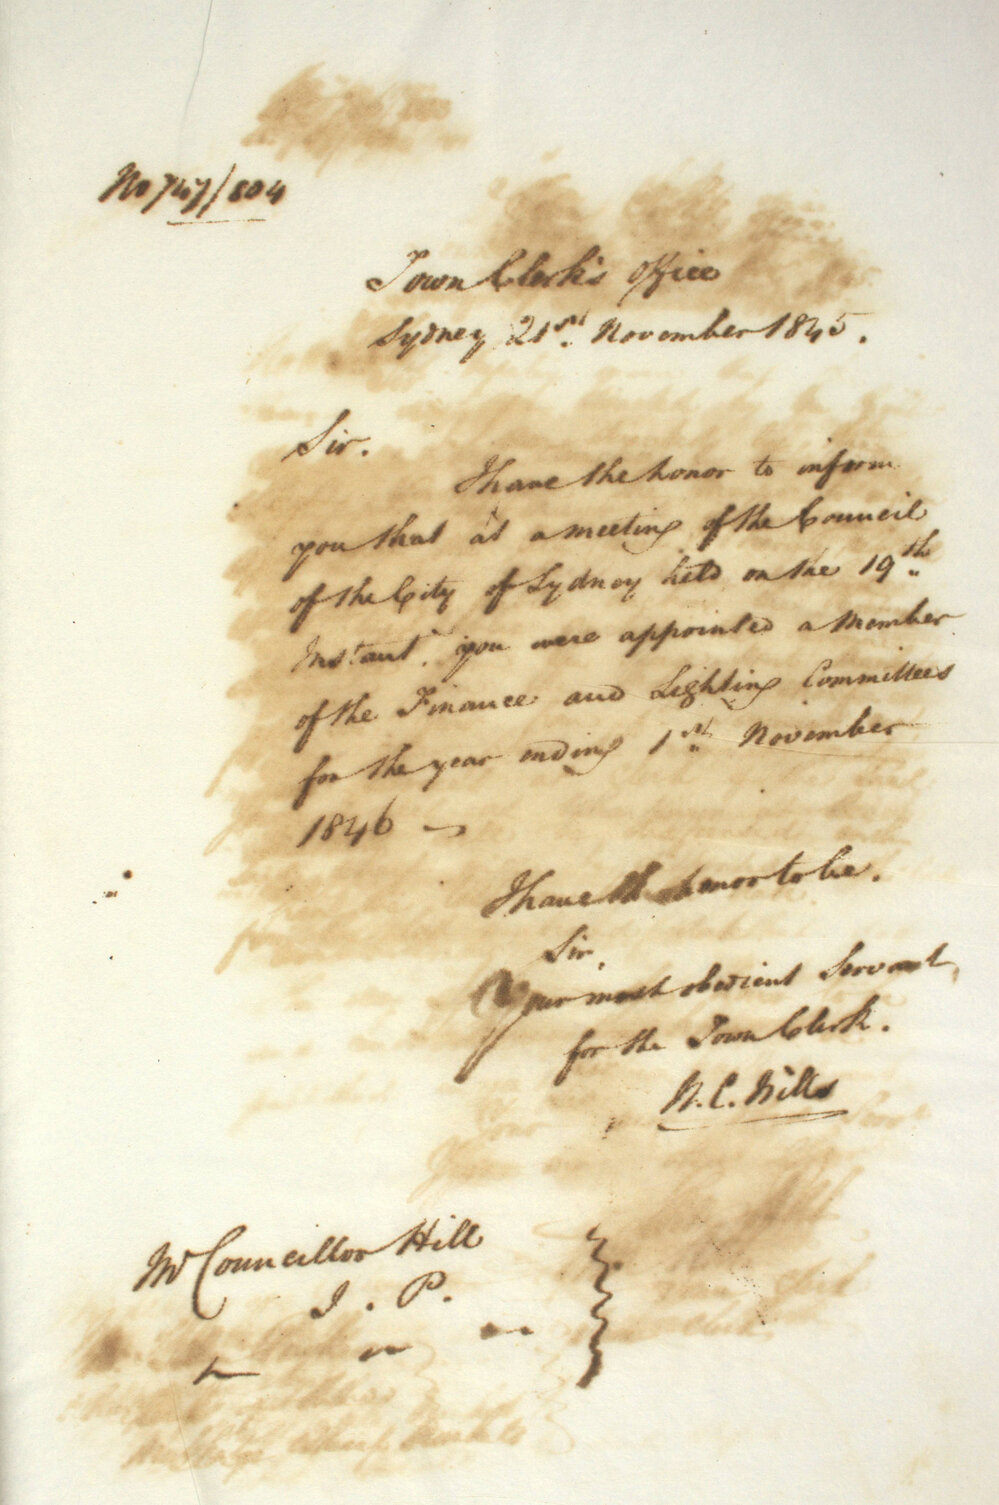 No 747/804
Town Clerk's Office
Sydney 21st. November 1845.
Sir.
I have the honor to inform
you that at a meeting of the Council
of the City of Sydney held on the 19th
Instant. you were appointed a Member
of the Finance and Lighting Committees
for the year ending 1st November
1846 —
I have the honor to be.
Sir.
Your most obedient Servant,
for the Town Clerk.
Mr Councillor Hill
J. P.